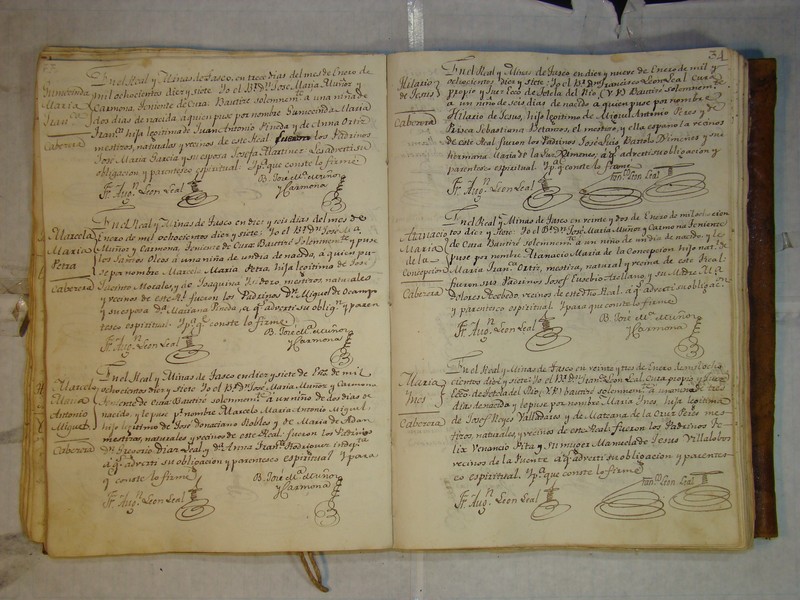 En el Real y Minas de Tasco, en trece dias del mes de Enero de
Innocencia mil ochocientos diez y siete: Yo el Br. Dn. Jose Maria Muñoz y
Maria Carmona Teniente de Cura: Bautizé solemnemte. a una niña de
Franca. dos dias de nacida, a quien puse por nombre Innocencia Maria
Cabecera Franca. hija legitima de Juan Antonio Pineda y de Anna Ortiz
mestizos, naturales y vecinos de este Real fueron los Padrinos
Jose Maria Garcia y su esposa Josefa Martinez Les adverti su
obligacion y parentesco espiritual. Y pa. que conste lo firmé
Fr. Augn. Leon Leal
B. José Ma. Muñoz
y Carmona
En el Real y Minas de Tasco en diez y seis dias del mes de
Marcela Enero de mil ochocientos diez y siete: Yo el Br. Dn. Jose Ma.
Maria Muñoz y Carmona, Teniente de Cura: Bautizé Solemnemte. y puse
Petra los Santos Oleos a una niña de un dia de nacida, a quien pu-
Cabecera se por nombre Marcela Maria Petra, hija legitima de José
Jacinto Morales, y de Joaquina Isidoro, mestizos naturales
y vecinos de este Rl. fueron los Padrinos Dn. Miguel de Ocampo
y su esposa Da. Mariana Pineda, a qs. adverti su oblign. y paren-
tesco espiritual. Ypa. q. conste lo firmé
Fr. Augn. Leon Leal
B. José Ma. Muñoz
y Carmona
En el Real y Minas de Tasco en diez y siete de Eno. de mil
Marcelo ochocientos diez y siete Yo el Br. Dn. Jose Maria Muñoz y Carmona
Maria Teniente de Cura: Bautizé solemnemte. a un niño de dos dias de
Antonio nacido, y le puse pr. nombre Marcelo Maria Antonio Miguel
Miguel hijo legitimo de José Donaciano Robles y de Maria de Adan
Cabecera mestizos, naturales y vecinos de este Real. fueron los Padrinos
Dn. Gregorio Diaz Leal, y Da. Anna Franca. Rodriguez
a qs. adverti su obligacion y parentesco espiritual Y para
q. conste lo firmé
Fr. Augn. Leon Leal
B. José Ma. Muñoz
y Carmona
34
En el Real y Minas de Tasco en diez y nueve de Enero de mil y
Hilario ochocientos diez y siete: Yo el Br. Dn. Francisco Leon Leal Cura
de Jesus propio y Juez Ecco. de Tetela del Rio (V.P.) Bautizé Solemnemte.
Cabecera a un niño de seis dias de nacido a quien puse por nombre
Hilario de Jesus, hijo legitimo de Miguel Antonio Perez y de
Prisca Sebastiana Betancos, el mestizo, y ella española vecinos
de este Real fueron los Padrinos Jose Luis Bartolo Ximenez y su
hermana Maria de la Luz Ximenes; a qs. adverti su obligacion y
parentesco espiritual Y pa. q. conste lo firmé
Fr. Augn. Leon Leal
Franco. Leon Leal
En el Real y Minas de Tasco en veinte y dos de Enero de mil ochocien
Atanacio tos diez y siete: Yo el Br. Dn. Jose Maria Muñoz y Carmona Teniente
Maria de Cura: Bautizé solemnemte. a un niño de un dia de nacido, y le
de la puse por nombre Atanacio Maria de la Concepcion hijo natl. de
Concepcion Maria Franca. Ortiz, mestiza, natural y vecina de este Real:
Cabecera fueron sus Padrinos Jose Eusebio Arellano y su Madre Ma.
Dolores Acebedo vecinos de este dho. Real. a qs. adverti su obligac.
y parentesco espiritual Y para que conste lo firmé
Fr. Augn. Leon Leal
B. José Ma. Muñoz
y Carmona
En el Real y Minas de Tasco en veinte y tres de Enero de mil ocho
Maria cientos diez y siete: Yo el Br. Dn. Franco. Leon Leal, cura propio y Juez
Ines Ecco. de Tetela del Rio (V.P.) bautizé solemnemte. a una niña de tres
Cabecera dias de nacida y le puse por nombre Maria Ines, hija legitima
de Josef Reyes Valladares y de Mariana de la Cruz Peres mes-
tizos, naturales, y vecinos de este Real: fueron los Padrinos
Venancio Pita y su mujer Manuela de Jesus Villalobos
vecinos de la Puente a qs. adverti su obligacion y parentes-
co espiritual. Y pa. que conste lo firmé
Fr. Augn. Leon Leal
Franco. Leon Leal